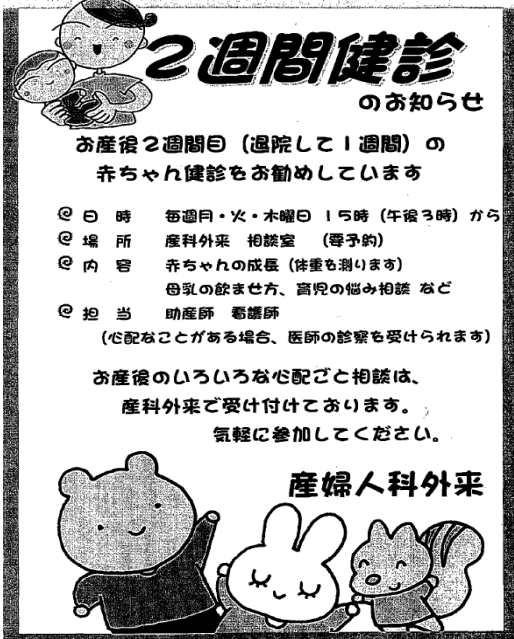 2週間健診
のお知らせ
お産後2週間目（退院して1週間）の
赤ちゃん健診をお勧めしています
@ 日 時 毎週月・火・木曜日 15時（午後3時）から
@ 場 所 産科外来 相談室 （要予約）
@ 内 容 赤ちゃんの成長（体重を測ります）
母乳の飲ませ方、育児の悩み相談 など
@ 担 当 助産師 看護師
（心配なことがある場合、医師の診察を受けられます）
お産後のいろいろな心配ごと相談は、
産科外来で受け付けております。
気軽に参加してください。
産婦人科外来